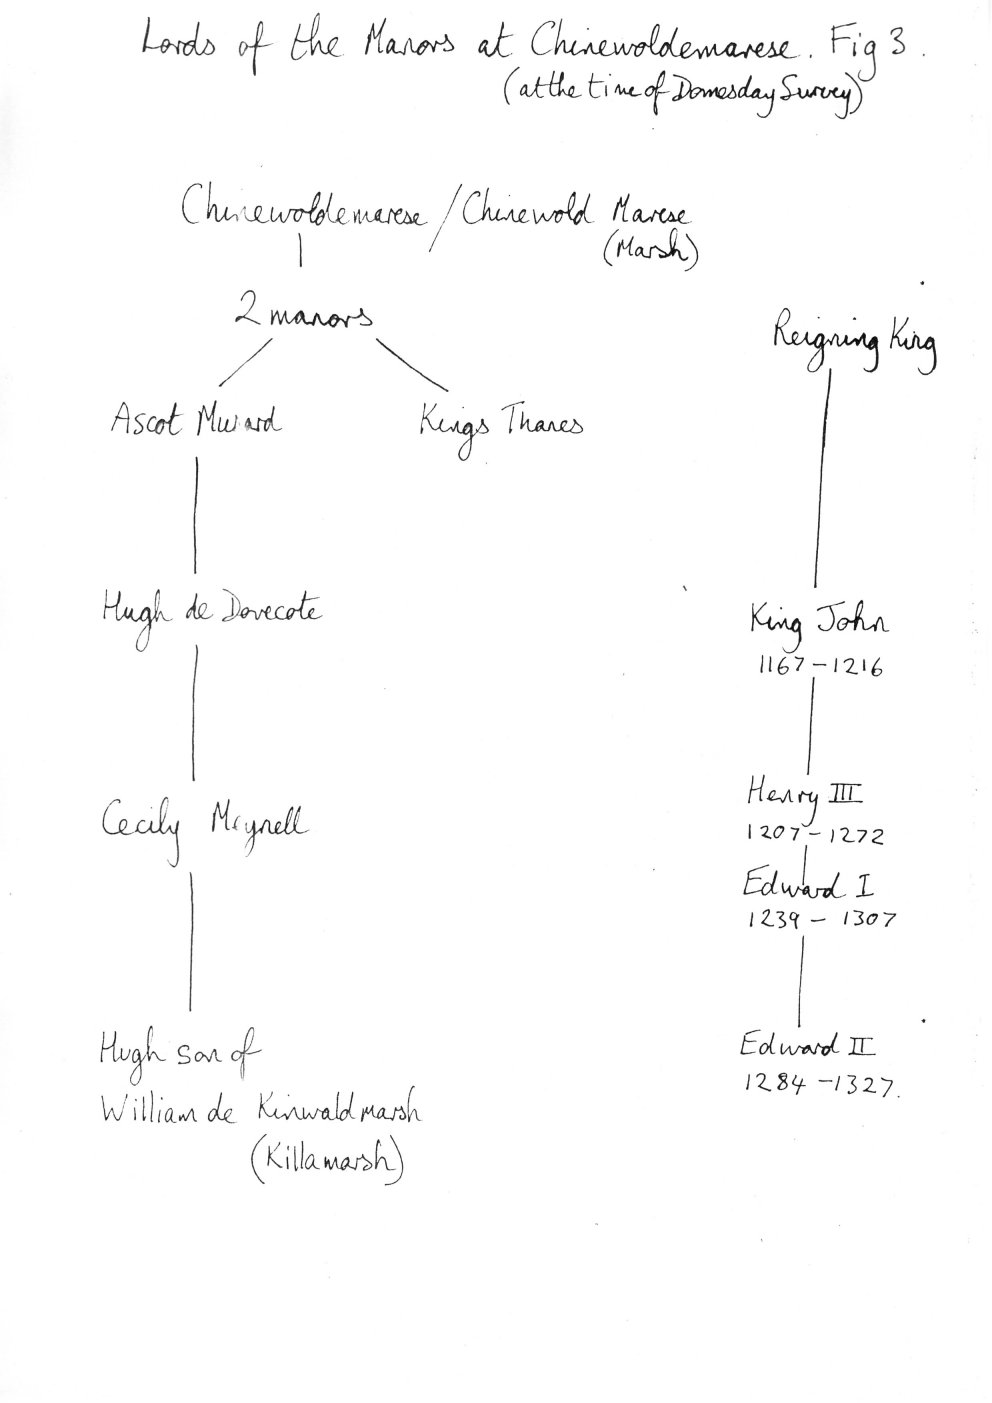 Lords of the Manors at Chinewoldemarese. Fig 3.
(at the time of Domesday Survey)
Chinewoldemarese / Chinewold Marese
(Marsh)
2 manors
Reigning King
Ascot Kings Thanes
Hugh de Dovecote
King John
1167 - 1216
Cecily Meynell
Henry III
1207 - 1272
Edward I
1239 - 1307
Hugh son of
William de Kinwaldmarsh
(Killamarsh)
Edward II
1284 - 1327.